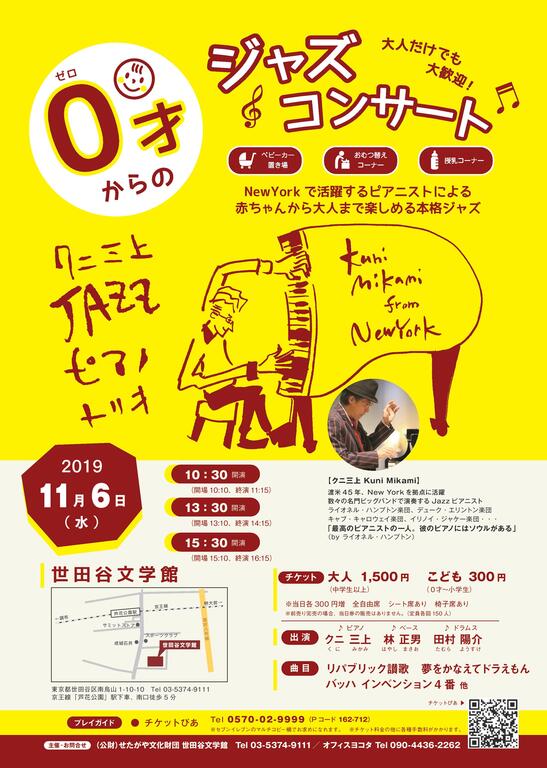 ゼロ
0才
からの
ジャズ
コンサート
大人だけでも
大歓迎！
ベビーカー
置き場
おむつ替え
コーナー
授乳コーナー
NewYork で活躍するピアニストによる
赤ちゃんから大人まで楽しめる本格ジャズ
クニ三上
JAZZ
ピアノ
トリオ
Kuni
Mikami
from
NewYork
2019
11月6日
（水）
10：30 開演
（開場 10:10、終演 11:15）
13：30 開演
（開場 13:10、終演 14:15）
15：30 開演
（開場 15:10、終演 16:15）
【クニ三上 Kuni Mikami】
渡米 45 年、New York を拠点に活躍
数々の名門ビッグバンドで演奏する Jazz ピアニスト
ライオネル・ハンプトン楽団、デューク・エリントン楽団
キャブ・キャロウェイ楽団、イリノイ・ジャケー楽団・・・
「最高のピアニストの一人。彼のピアノにはソウルがある」
（by ライオネル・ハンプトン）
世田谷文学館
芦花公園駅
京王線
サミットストア
成城石井
スポーツクラブ
世田谷文学館
東京都世田谷区南烏山 1-10-10　Tel 03-5374-9111
京王線「芦花公園」駅下車、南口徒歩 5 分
チケット 大人 1,500円 こども 300円
（中学生以上） （0才～小学生）
※当日各 300 円増　全自由席　シート席あり　椅子席あり
※前売り完売の場合、当日券の販売はありません。（定員各回 150 人）
出演
♪ ピアノ ♪ ベース ♪ ドラムス
クニ 三上 林 正男 田村 陽介
くに みかみ はやし まさお たむら ようすけ
曲目 リパブリック讃歌　夢をかなえてドラえもん
バッハ インベンション４番 他
チケットぴあ ▶
プレイガイド ● チケットぴあ Tel 0570-02-9999（P コード 162-712）
※セブンイレブンのマルチコピー機でお求めになれます。 ※チケット料金の他に各種手数料がかかります。
主催・お問合せ （公財）せたがや文化財団 世田谷文学館　Tel 03-5374-9111 ／ オフィスヨコタ Tel 090-4436-2262